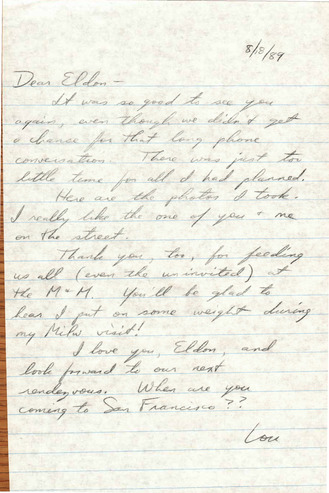 8/18/89
Dear Eldon —
It was so good to see you
again, even though we didn't get
a chance for that long phone
conversation. There was just too
little time for all I had planned.
Here are the photos I took.
I really like the one of you & me
on the street.
Thank you, too, for feeding
us all (even the uninvited) at
the M&M. You'll be glad to
hear I put on some weight during
my Milw visit!
I love you, Eldon, and
look forward to our next
rendezvous. When are you
coming to San Francisco??
Lou